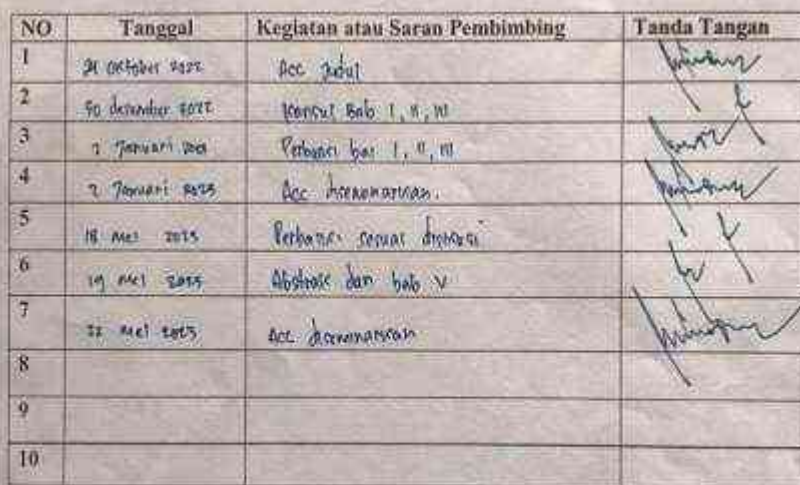 NO Tanggal Kegiatan atau Saran Pembimbing Tanda Tangan
1 21 oktober 2022 Acc Judul
2 30 desember 2022 Konsul Bab I, II, III
3 2 Januari Perbaiki bab I, II, III
4 2 Januari 2023 Acc diseminarkan.
5 18 Mei 2023 Perbaiki sesuai diskusi
6 19 Mei 2023 Abstrak dan bab V
7 22 Mei 2023 Acc diseminarkan
8
9
10